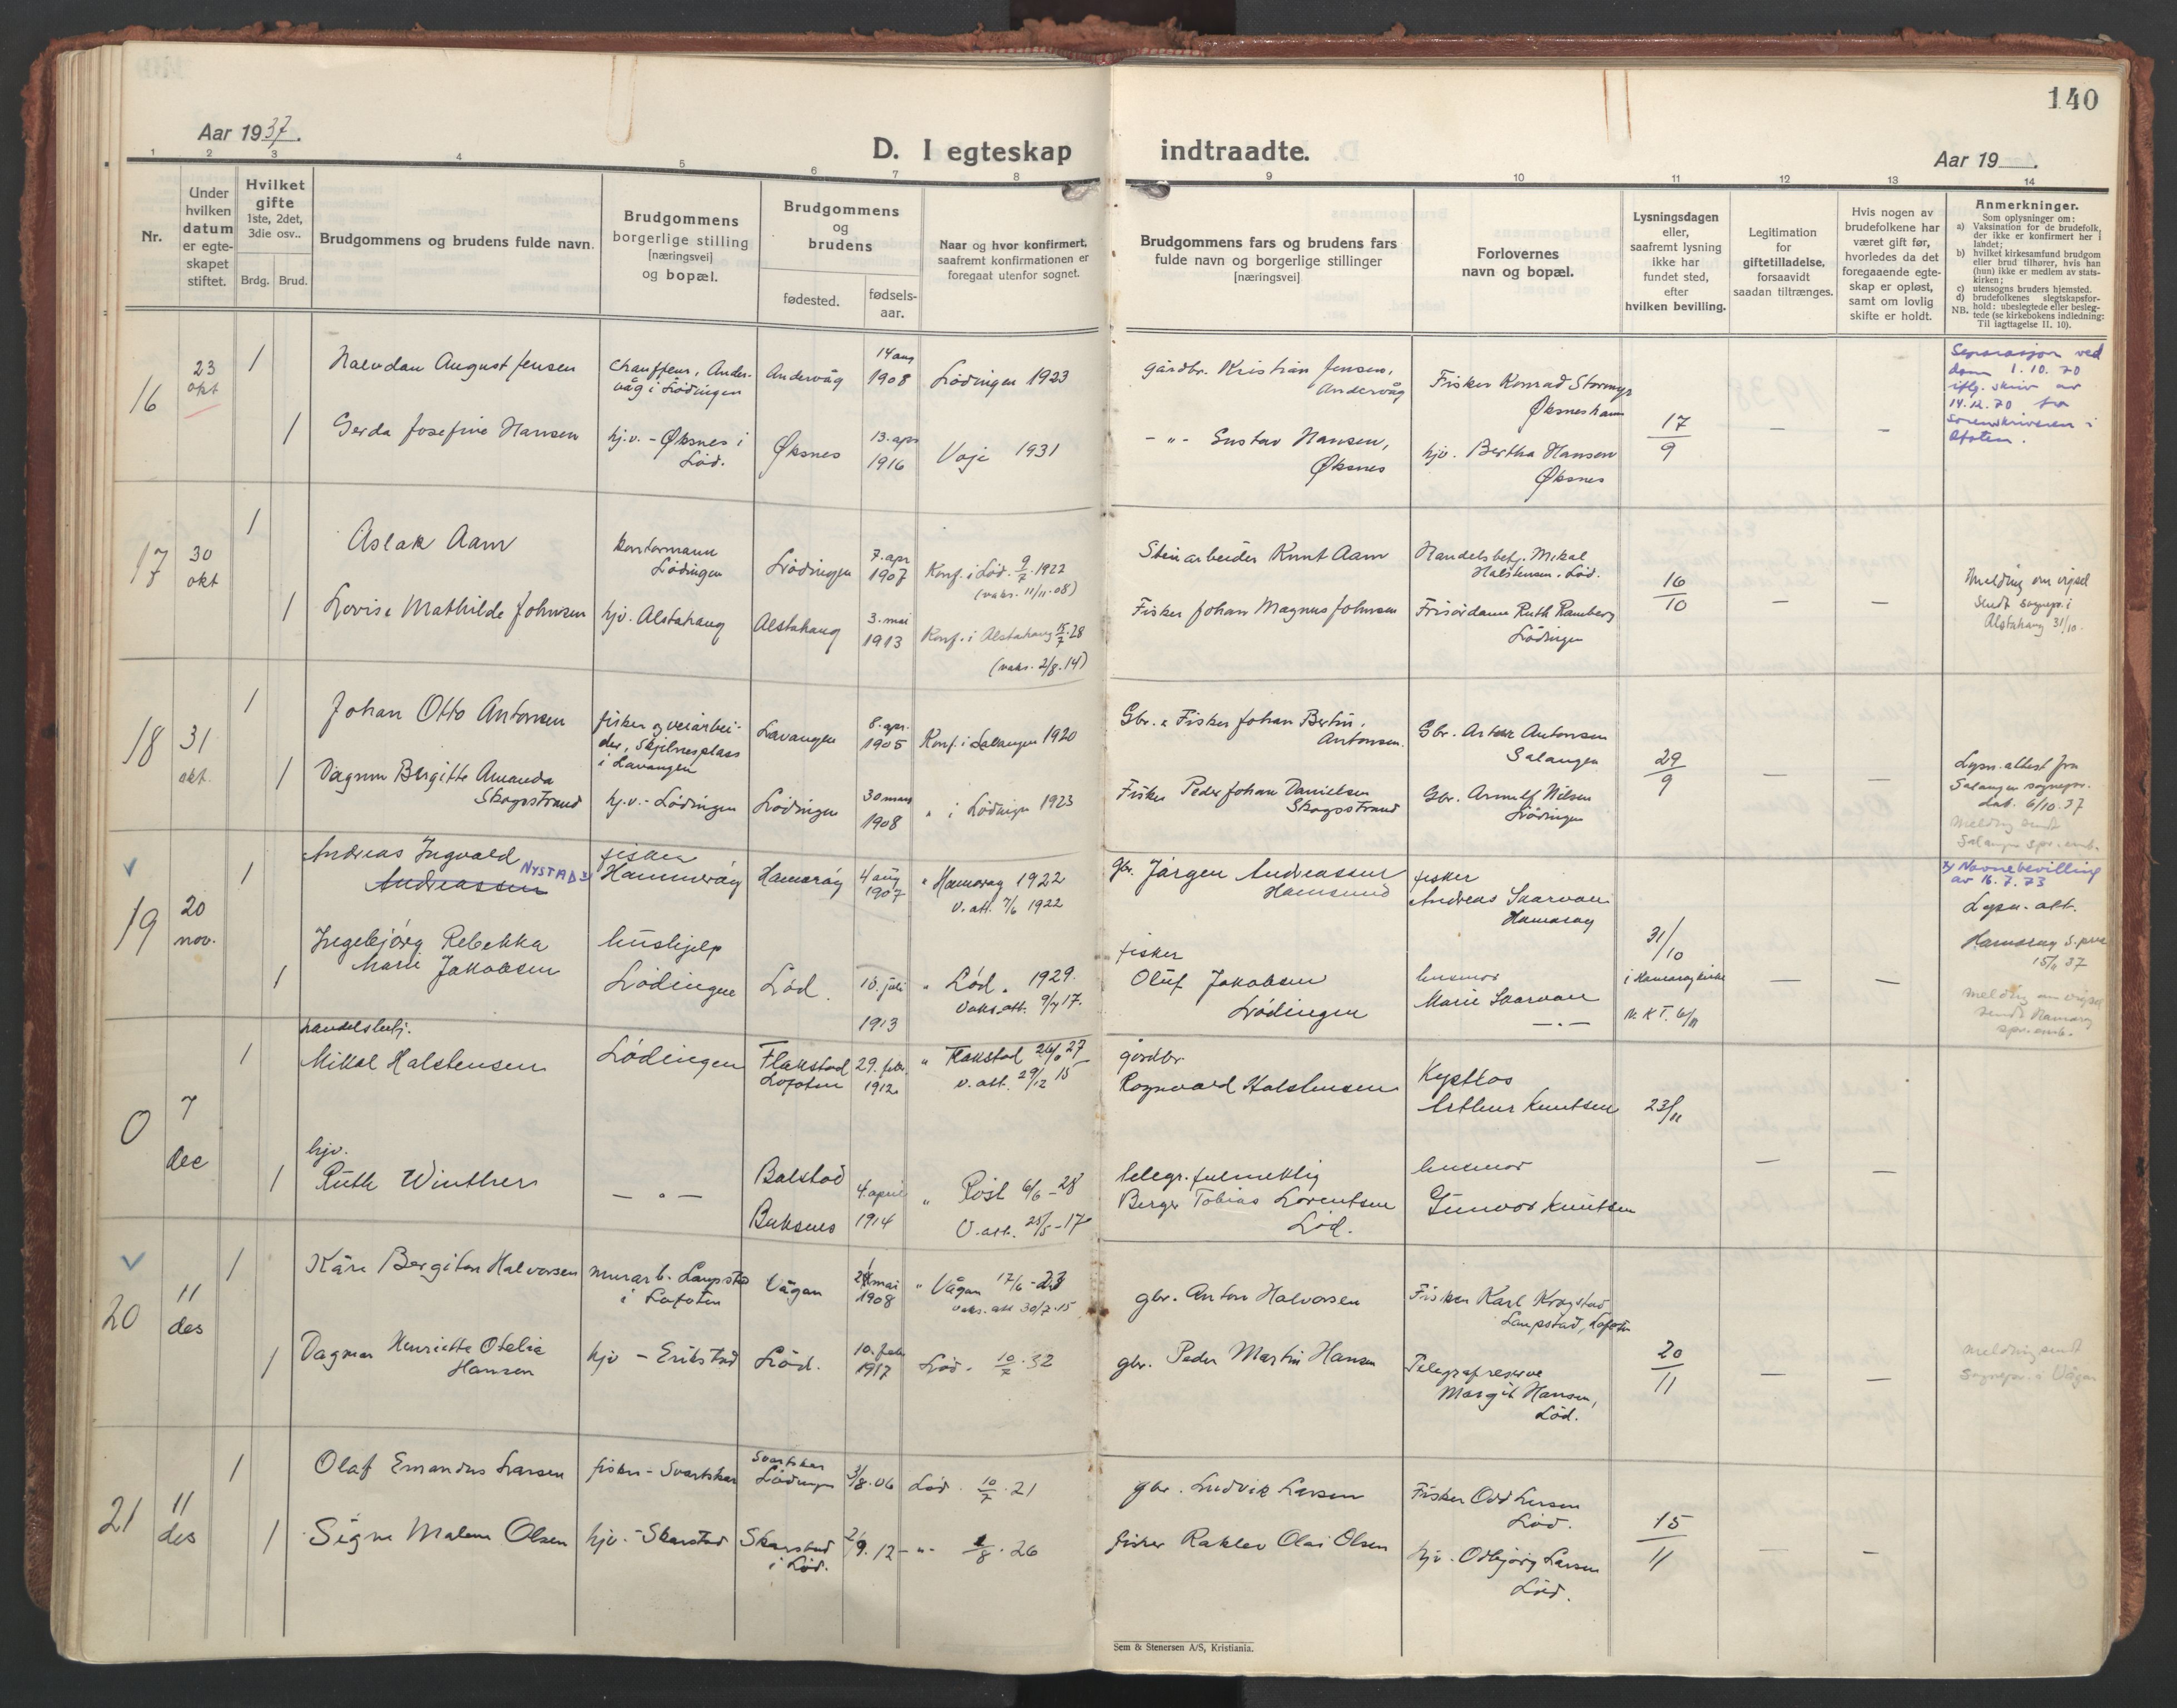 140
Aar 1937.
D. I egteskap
indtraadte.
Aar 19 .
1 2 3 4 5 6 7 8 9 10 11 12 13 14
Nr.
Under
hvilken
datum
er egte-
skapet
stiftet.
Hvilket
gifte
1ste, 2det,
3die osv..
Brdg. Brud.
Brudgommens og brudens fulde navn.
Brudgommens
borgerlige stilling
[næringsvei]
og bopæl.
Brudgommens
og
brudens
fødested.
fødsels-
aar.
Naar og hvor konfirmert,
saafremt konfirmationen er
foregaat utenfor sognet.
Brudgommens fars og brudens fars
fulde navn og borgerlige stillinger
[næringsvei]
Forlovernes
navn og bopæl.
Lysningsdagen
eller,
saafremt lysning
ikke har
fundet sted,
efter
hvilken bevilling.
Legitimation
for
giftetilladelse,
forsaavidt
saadan tiltrænges.
Hvis nogen av
brudefolkene har
været gift før,
hvorledes da det
foregaaende egte-
skap er opløst,
samt om lovlig
skifte er holdt.
Anmerkninger.
Som oplysninger om:
a) Vaksination for de brudefolk,
der ikke er konfirmert her i
landet;
b) hvilket kirkesamfund brudgom
eller brud tilhører, hvis han
(hun) ikke er medlem av stats-
kirken;
c) utensogns bruders hjemsted.
d) brudefolkenes slegtskapsfor-
hold: ubeslegtede eller besleg-
NB. tede (se kirkebokens indledning:
Til iagttagelse II. 10).
16
23
okt
1
Halvdan August Jensen
Chauffeur, Ander-
våg i Lødingen
Andervåg
14 aug
1908
Lødingen 1923
gårdbr. Kristian Jensen,
Andervåg
Fisker Konrad Stormyr
Øksneshavn
17
9
—
—
Separasjon ved
dom 1.10.70
iflg. skriv av
14.12.70 fra
sorenskriveren i
Ofoten.
1
Gerda Josefine Hansen
hj.v. - Øksnes i
Lød.
Øksnes
13. apr
1916
Voje 1931
- " - Gustav Hansen,
Øksnes
hjv. Bertha Hansen
Øksnes
17
30
okt
1
Aslak Aam
kontormann
Lødingen
Lødingen
7. apr
1907
Konf. i Lød. 9/7. 1922
(vaks. 11/11-08)
Steinarbeider Knut Aam
Handelsbetj. Mikal
Halstensen. Lød.
16
10
—
—
Melding om vigsel
sendt sognepr. i
Alstahaug 31/10.
1
Lovise Mathilde Johnsen
hjv. Alstahaug
Alstahaug
3. mai
1913
Konf. i Alstahaug 15/7. 28
(vaks. 2/8. 14)
Fisker Johan Magnus Johnsen
Frisørdame Ruth Ramberg
Lødingen
18
31
okt.
1
Johan Otto Antonsen
fisker og veiarbei-
der, Skjelnesplass
i Lavangen
Lavangen
8. apr.
1905
Konf. i Salangen 1920
Gbr. & Fisker Johan Bertin
Antonsen.
Gbr. Antonsen
Salangen
29
9
—
—
Lysn. attest fra
Salangen sognepr.
dat. 6/10.37
Melding sendt
Salangen spr. emb.
1
Dagrun Birgitte Amanda
Skogsstrand
hj.v. - Lødingen
Lødingen
30 mars
1908
" i Lødingen 1923
Fisker Peder Johan Danielsen
Skogsstrand
Gbr. Arnulf Nilsen
Lødingen
19
20
nov.
1
Andreas Ingvald
Andreassen NYSTAD
fisker
Hammerøy
Hamarøy
4 aug
1907
" Hamarøy 1922
v. att. 7/6 1922
gbr. Jørgen Andreassen
Hamsund
fisker
Andreas Skarvan
Hamarøy
31/10
i Hamarøy kirke
—
—
Navnebevilling
av 16.7.73
Lysn. att.
Hamarøy s. pr.
15/11 37
Melding om vigsel
sendt Hamarøy
spr. emb.
1
Ingebjørg Rebekka
Marie Jakobsen
hushjelp
Lødingen
Lød.
10. juli
1913
" Lød. 1929.
Vaks. att. 9/7 17.
fisker
Oluf Jakobsen
Lødingen
husmor
Marie Skarvan
— " —
0
7
dec
1
handelsbetj.
Mikal Halstensen
Lødingen
Flakstad
Lofoten
29. febr.
1912
" Flakstad 27
v. att. 29/12 15
gårdbr.
Rognvald Halstensen
Arthur Knutsen
23/11
—
—
1
hjv.
Ruth Winther
— " —
Balstad
Buksnes
4. april
1914
" Røst 6/6 - 28
V. att. 25/5 - 17
telegr. fulmektig
Berger Tobias Lorentsen
Lød.
husmor
Gunvor Knutsen
20
11
des
1
Kåre Bergiton Halvorsen
murarb. Laupstad
i Lofoten
Vågan
mai
1908
" Vågan 17/6 - 23
vaks. att 30/7. 15
gbr. Anton Halvorsen
Fisker Karl Krogstad
Laupstad, Lofoten
20
11
—
—
Melding sendt
sognepr. i Vågan
1
Dagmar Henriette Otelie
Hansen
hjv - Erikstad
Lød.
10. feb
1917
Lød. 10/7. 32
gbr. Peder Martin Hansen
Telegrafreserve
Margit Hansen,
Lød.
21
11
des
1
Olaf Emandus Larsen
fisker - Svartskar
Svartskar
Lødingen
3/8. 06
Lød. 10/7. 21
gbr. Ludvik Larsen
Fisker Odd Larsen
Lød.
15
11
—
—
1
Signe Malene Olsen
hjv. - Skarstad
Skarstad
i Lød.
2/9. 12
- " - 1/8. 26
fisker Olai Olsen
hjv. Odbjørg Larsen
Lød.
Sem & Stenersen A/S, Kristiania.